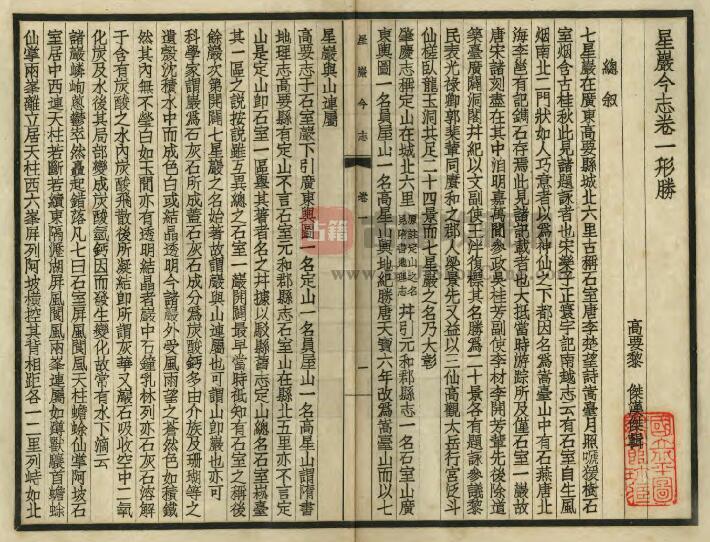 星巖今志卷一形勝
高要黎 傑漢傑輯
總叙
七星巖在廣東高要縣城北六里古稱石室唐李邕望詩嵩臺月照啼猿樹石
室烟含古桂秋此見諸題詠者也宋樂史正寰宇記南越志云有石室自生風
烟南北二門狀如人巧意者以爲神仙之下都因名爲嵩臺山中有石燕唐北
海李邕有記鐫石存焉此見諸記載者也大抵當時游踪所及僅石室一巖故
唐宋諸刻盡在其中洎明嘉萬間參政吳桂芳副使李材李開芳輩先後除道
築臺廣闢洞闥并紀以文副使王泮復標其名勝爲二十景各有題詠參議黎
民表光祿卿郭棐輩同賡和之郡人學景先又益以三仙高觀太岳行宮泛斗
仙槎臥龍玉洞共足二十四景而七星巖之名乃大彰
肇慶志稱定山在城北六里 并引元和郡縣志石室山一名石室山廣
東輿圖一名員屋山一名高星山輿地紀勝唐天寶六年改爲嵩臺山而以七
星巖今志 卷一 一
星巖與山連屬
高要志于石室巖下引廣東輿圖一名定山一名員屋山一名高星山謂隋書
地理志高要縣有定山不言石室元和郡縣志石室山在縣北五里亦不言定
山是定山卽石室一區舉其著者名之幷據以駁縣舊志定山總名石室嵩臺
其一區之說按說雖互異總之石室一巖開闢最早當時祗知有石室之稱後
餘巖次第開闢七星巖之名始著故謂巖與山連屬也可謂山卽巖也亦可
科學家謂巖爲石灰石所成蓋石灰石成分爲炭酸鈣多由介族及珊瑚等之
遺殼沈積水中而成色白或結晶透明今諸巖外受風雨望之蒼然色如積鐵
然其內無不學白如玉間亦有透明結晶者巖中石鐘乳林列亦石灰石溶解
于含有炭酸之水內炭酸飛散後所凝結卽所謂灰華又巖石吸收空中二氧
化炭及水後其局部變成炭酸氫鈣因而發生變化故常有水下滴云
諸巖嶙峋葱鬱崒然矗起錯落凡七曰石室屏風閬風天柱蟾蜍仙掌阿坡石
室居中西連天柱若斷若續東隔瀝湖屏風閬風兩峯連屬如蹲獸巖首蟾蜍
仙掌兩峯離立居天柱西六峯屏列阿坡橫控其背相距各一二里列峙如北